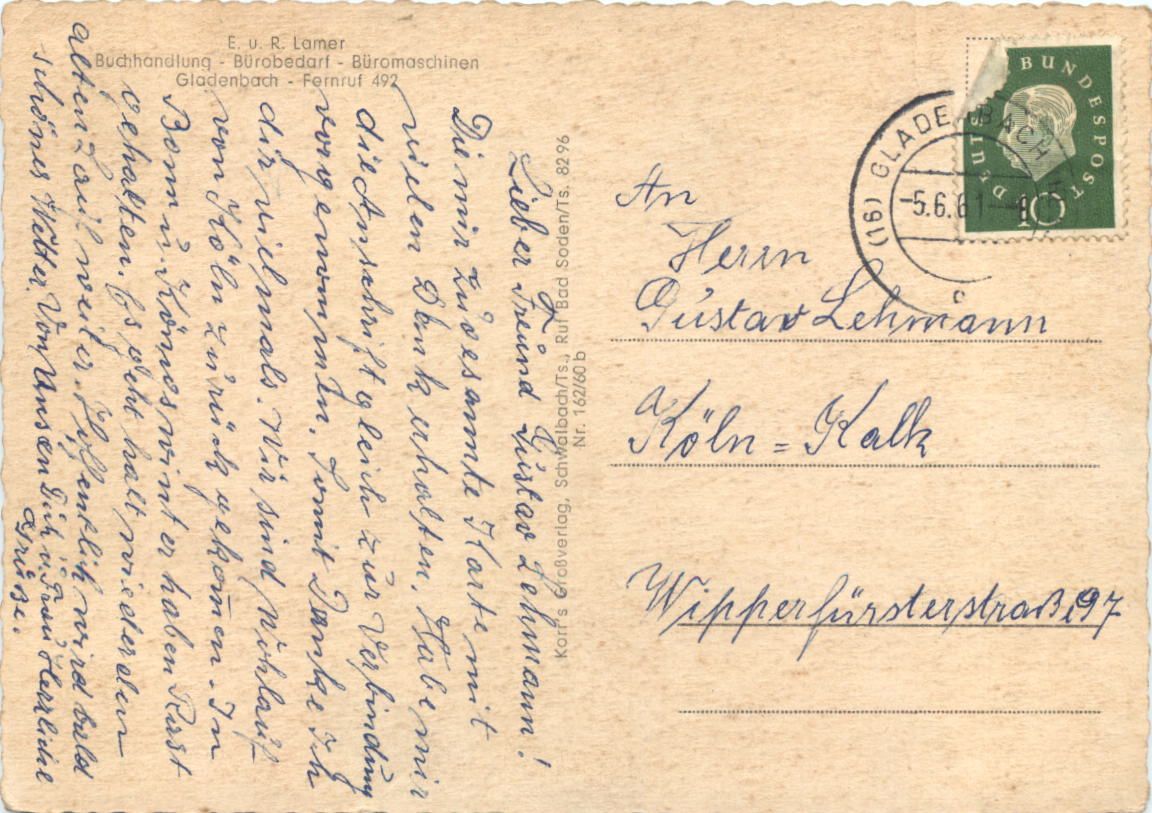 E. u. R. Lamer
Buchhandlung - Bürobedarf - Büromaschinen
Gladenbach - Fernruf 492
Lieber Freund Gustav Lehmann!
Die mir zugesannte Karte mit
vielen Dank erhalten. Habe mir
die Anschrift gleich zur Verbindung
vorgenommen. Somit Danke Ich
dir vielmals. Wir sind Wohlauf
von Köln zurück gekommen. In
Bonn u. Königswinter haben Rast
gehalten. Es geht halt wieder den
alten Lauf weiter. Hoffenklich wird bald
schönes Wetter. Von Unsen Dich u. Frau Herzliche
Grüße.
Karl's Großverlag, Schwalbach/Ts., Ruf Bad Soden/Ts. 8296
Nr. 162/60 b
DEUTSCHE BUNDESPOST
10
(16) GLADENBACH
-5.6.61-
c
An
Herrn
Gustav Lehmann
Köln = Kalk
Wipperfürsterstraße 97